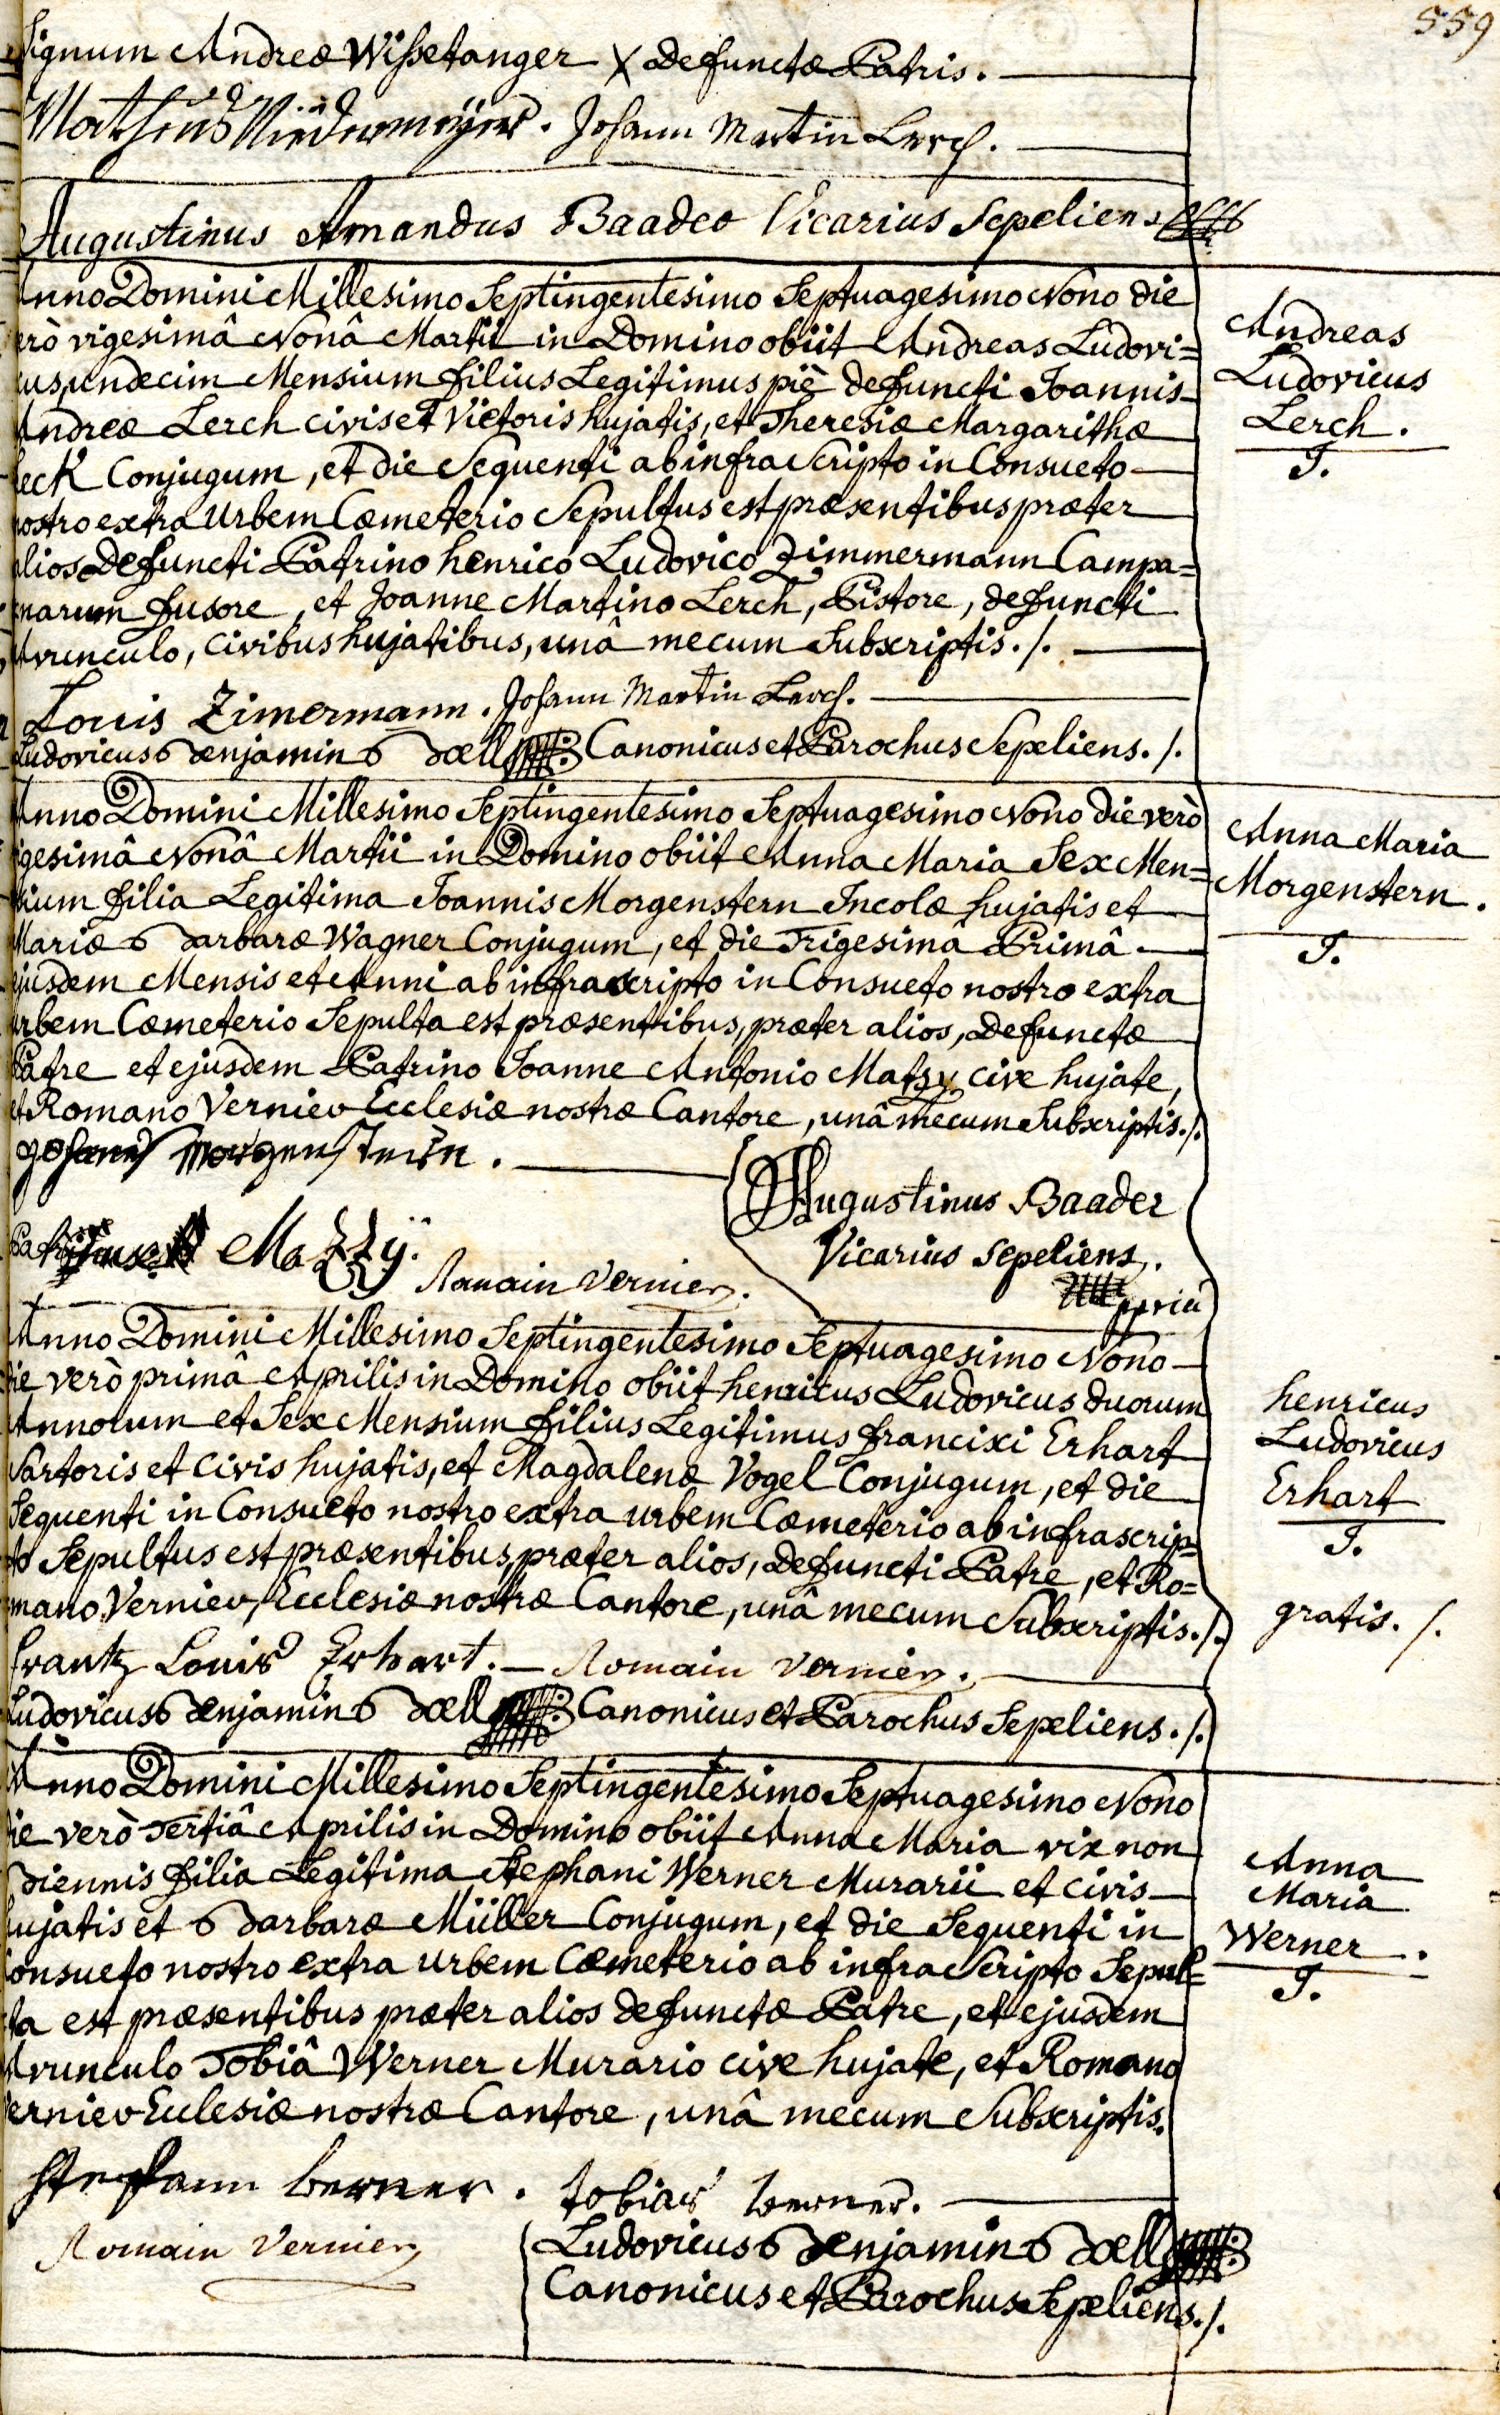 559
Signum Andreæ Wissetanger X Defunctæ Patris.
Matheus Niedermeÿer. Johann Martin Lerch.
Augustinus Amandus Baader Vicarius Sepeliens
Anno Domini Millesimo Septingentesimo Septuagesimo Nono die
erò vigesimâ Nonâ Martii in Domino obiit Andreas Ludovi=
cus, undecim Mensium filius Legitimus piè defuncti Joannis
Andreæ Lerch civis et Victoris hujatis, et Theresiæ Margarithæ
eck Conjugum, et die Sequenti ab infra Scripto in Consueto
nostro extra Urbem Cæmeterio Sepultus est præsentibus præter
alios Defuncti Patrino henrico Ludovico Zimmermann Campa=
narum fusore, et Joanne Martino Lerch, Pistore, defuncti
Avunculo, Civibus hujatibus, unâ mecum Subscriptis./.
Louis Zimermann. Johann Martin Lerch.
Ludovicus Benjamin Boell Canonicus et Parochus Sepeliens./.
Andreas
Ludovicus
Lerch.
J.
Anno Domini Millesimo Septingentesimo Septuagesimo Nono die verò
igesimâ Nonâ Martii in Domino obiit Anna Maria Sex Men=
sium filia Legitima Joannis Morgenstern Incolæ hujatis et
Mariæ Barbaræ Wagner Conjugum, et die Trigesimâ Primâ
ejusdem Mensis et Anni ab infrascripto in Consueto nostro extra
urbem Cæmeterio Sepulta est præsentibus, præter alios, Defunctæ
Patre et ejusdem Patrino Joanne Antonio Matzy cive hujate,
et Romano Vernier Ecclesiæ nostræ Cantore, unâ mecum Subscriptis./.
Johannes Morgenstern.
Augustinus Baader
Vicarius Sepeliens.
Mazzÿ.
Romain Vernier.
ppria
Anna Maria
Morgenstern.
J.
Anno Domini Millesimo Septingentesimo Septuagesimo Nono
die verò primâ Aprilis in Domino obiit henricus Ludovicus duorum
Annorum et Sex Mensium filius Legitimus francisci Erhart
Sartoris et Civis hujatis, et Magdalenæ Vogel Conjugum, et die
Sequenti in Consueto nostro extra urbem Cæmeterio ab infrascrip=
to Sepultus est præsentibus, præter alios, Defuncti Patre, et Ro=
mano Vernier, Ecclesiæ nostræ Cantore, unâ mecum Subscriptis./.
frantz Louis Erhart. Romain Vernier.
Ludovicus Benjamin Boell Canonicus et Parochus Sepeliens./.
henricus
Ludovicus
Erhart
J.
gratis./.
Anno Domini Millesimo Septingentesimo Septuagesimo Nono
die verò Tertiâ Aprilis in Domino obiit Anna Maria vix non
Biennis filia Legitima Stephani Werner Murarii et civis
hujatis et Barbaræ Müller Conjugum, et die Sequenti in
Consueto nostro extra urbem Cæmeterio ab infra Scripto Sepul=
ta est præsentibus præter alios defunctæ Patre, et ejusdem
Avunculo Tobiâ Werner Murario cive hujate, et Romano
Vernier Ecclesiæ nostræ Cantore, unâ mecum Subscriptis.
Stephann Werner. Tobias Werner.
Romain Vernier
Ludovicus Benjamin Boell
Canonicus et Parochus Sepeliens./.
Anna
Maria
Werner.
J.